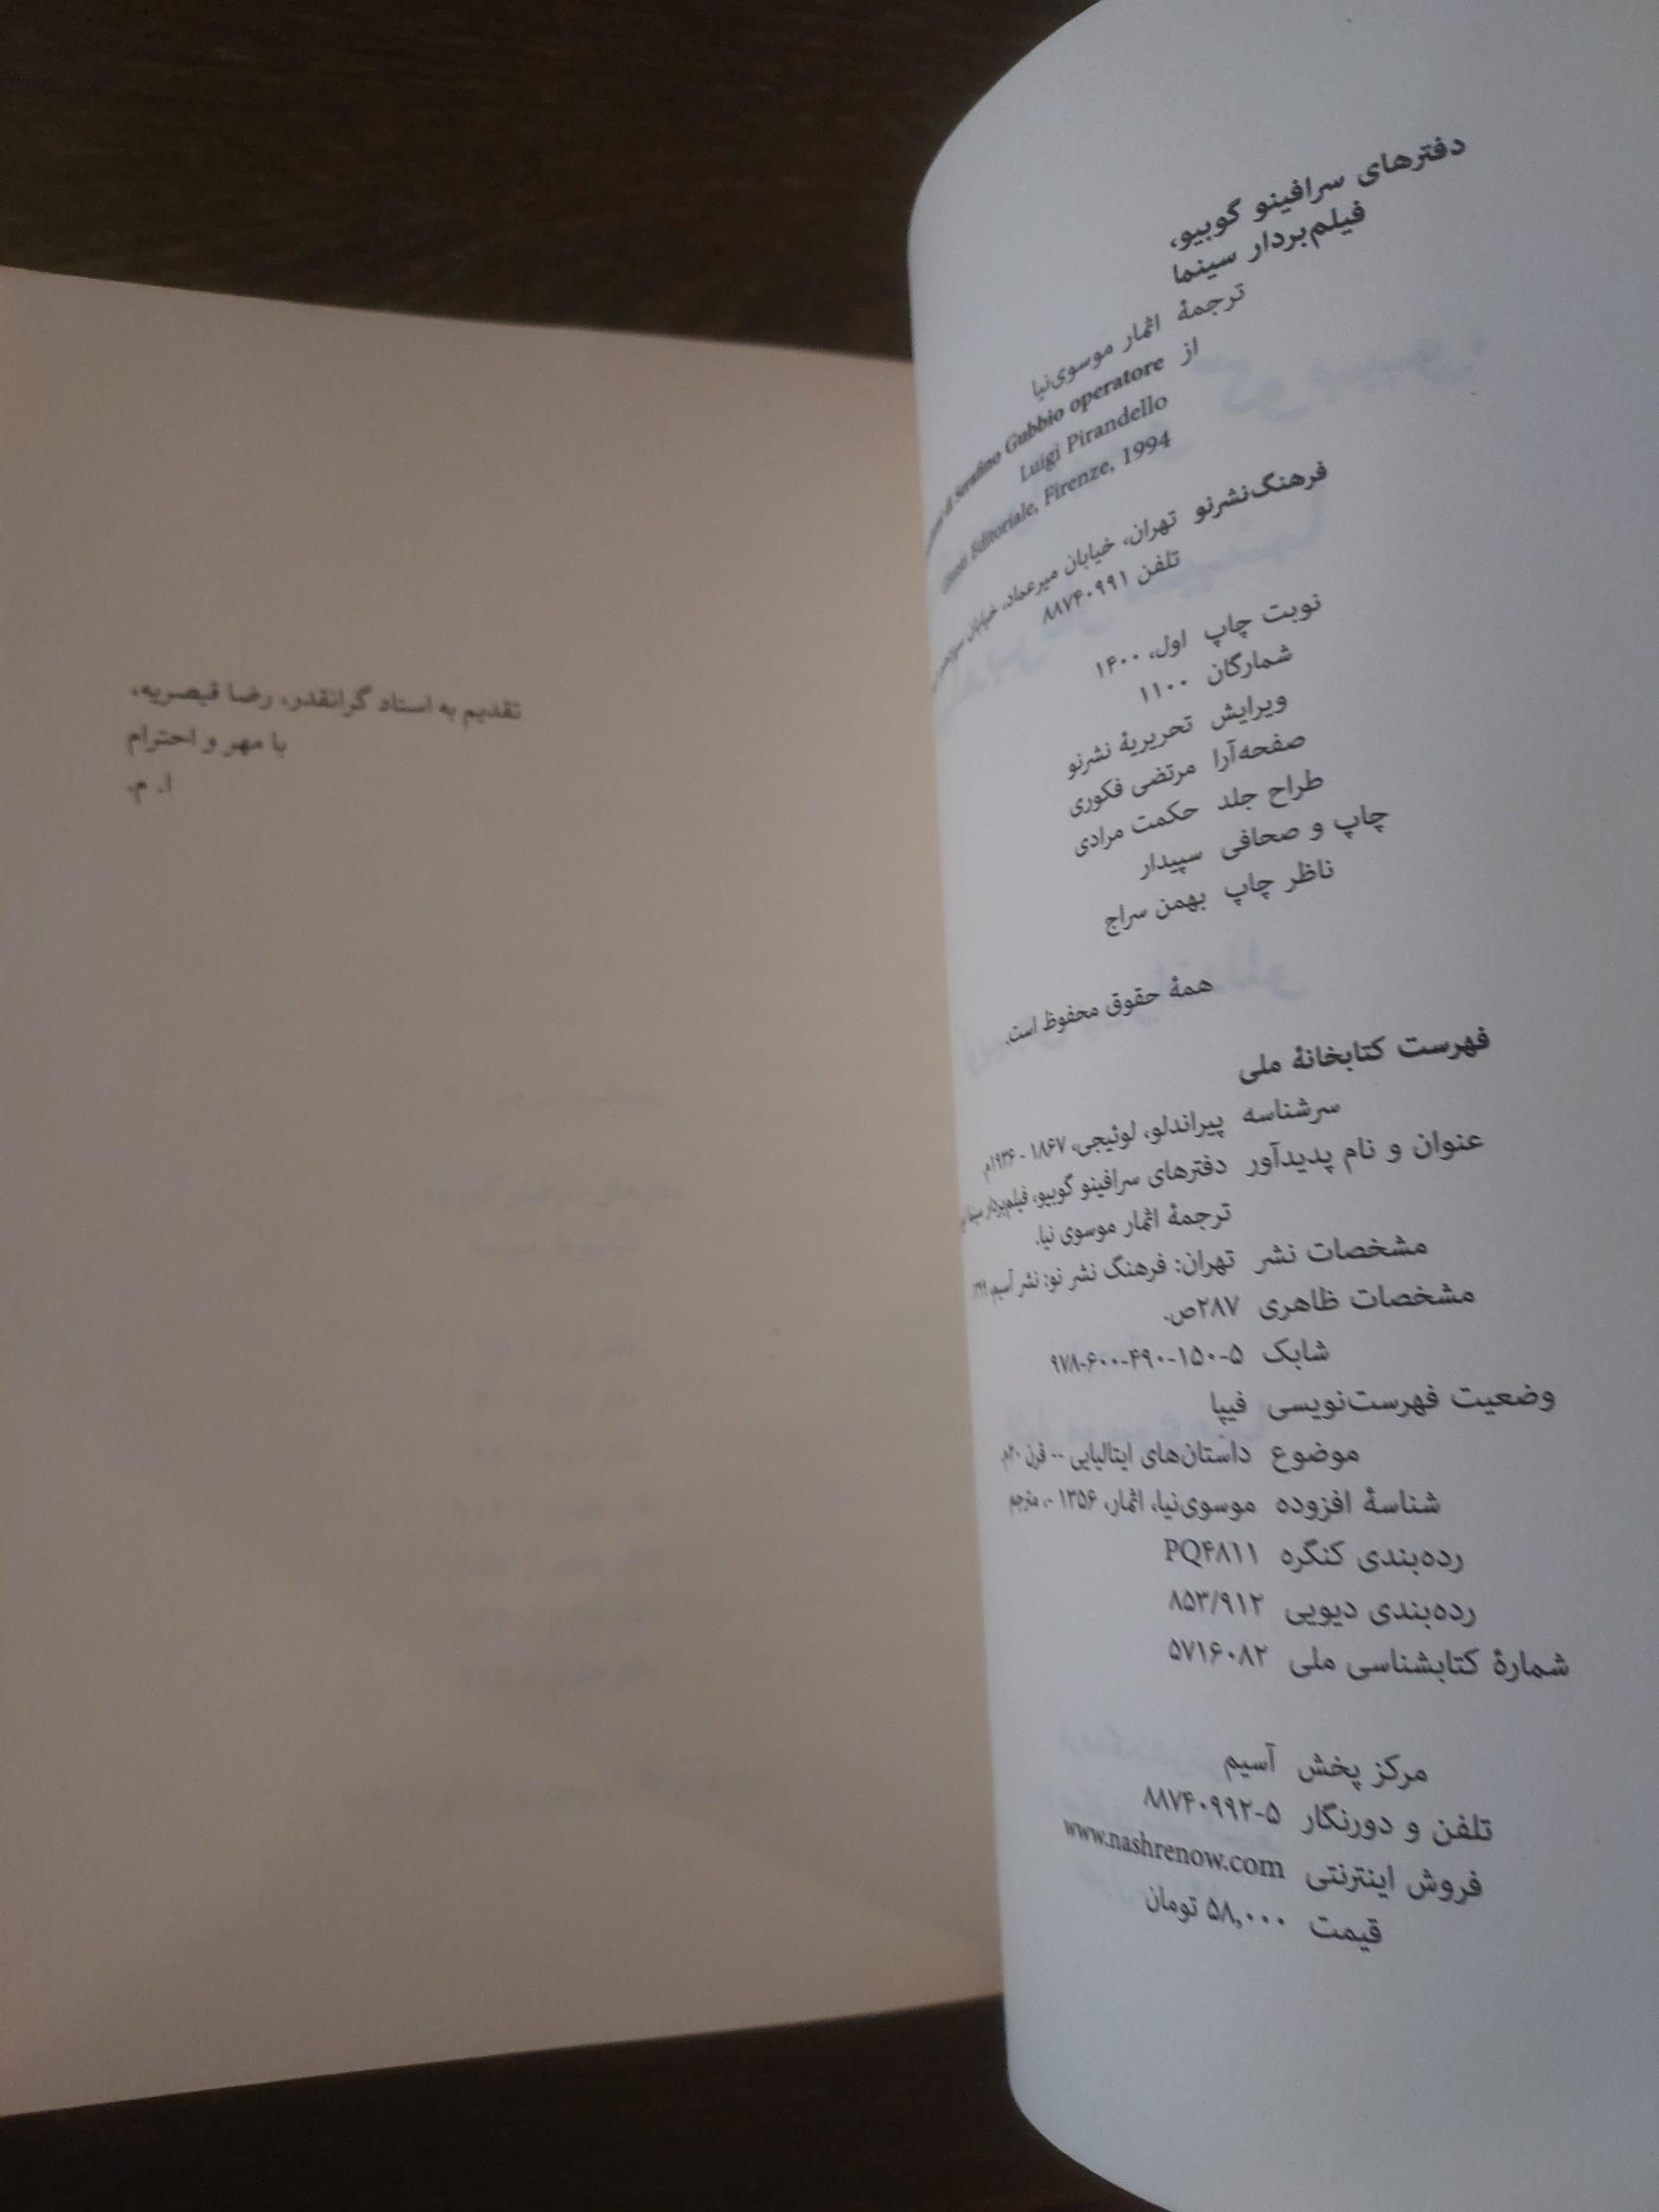 دفترهای سرافینو گوبیو،
فیلم‌بردار سینما
ترجمهٔ اثمار موسوی‌نیا
از
di Serafino Gubbio operatore
Luigi Pirandello
Editoriale, Firenze, 1994
فرهنگ‌نشرنو تهران، خیابان میرعماد، خیابان
تلفن ۸۸۷۴۰۹۹۱
نوبت چاپ اول، ۱۴۰۰
شمارگان ۱۱۰۰
ویرایش تحریریهٔ نشرنو
صفحه‌آرا مرتضی فکوری
طراح جلد حکمت مرادی
چاپ و صحافی سپیدار
ناظر چاپ بهمن سراج
همهٔ حقوق محفوظ است.
فهرست کتابخانهٔ ملی
سرشناسه پیراندلو، لوئیجی، ۱۸۶۷ - ۱۹۳۶م.
عنوان و نام پدیدآور دفترهای سرافینو گوبیو، فیلم‌بردار سینما
ترجمهٔ اثمار موسوی نیا.
مشخصات نشر تهران: فرهنگ نشر نو: نشر آسیم،
مشخصات ظاهری ۲۸۷ص.
شابک ۹۷۸-۶۰۰-۴۹۰-۱۵۰-۵
وضعیت فهرست‌نویسی فیپا
موضوع داستان‌های ایتالیایی -- قرن ۲۰م.
شناسهٔ افزوده موسوی‌نیا، اثمار، ۱۳۵۶ -، مترجم
رده‌بندی کنگره PQ۴۸۱۱
رده‌بندی دیویی ۸۵۳/۹۱۲
شمارهٔ کتابشناسی ملی ۵۷۱۶۰۸۲
مرکز پخش آسیم
تلفن و دورنگار ۸۸۷۴۰۹۹۲-۵
فروش اینترنتی www.nashrenow.com
قیمت ۵۸,۰۰۰ تومان
تقدیم به استاد گرانقدر، رضا قیصریه،
با مهر و احترام
ا. م.